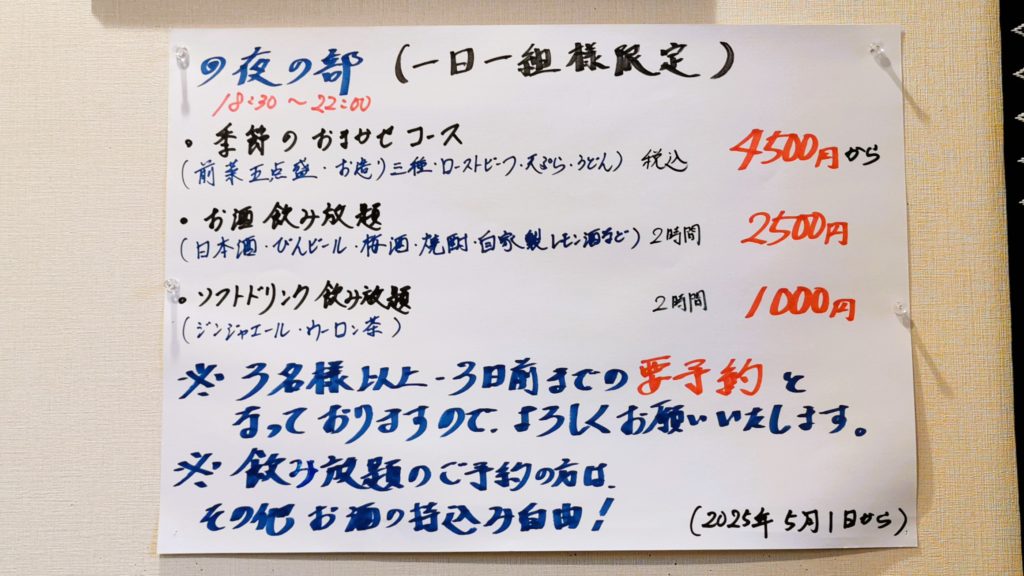 の夜の部 (一日一組様限定)
18:30〜22:00
・季節のおまかせコース
(前菜五点盛・お造り三種・ローストビーフ・天ぷら・うどん) 税込 4500円から
・お酒飲み放題
(日本酒・びんビール・梅酒・焼酎・自家製レモン酒など) 2時間 2500円
・ソフトドリンク飲み放題 2時間 1000円
(ジンジャエール・ウーロン茶)
※3名様以上-3日前までの要予約と
なっておりますので、よろしくお願いいたします。
※飲み放題のご予約の方は、
その他お酒の持込み自由!
(2025年5月1日から)